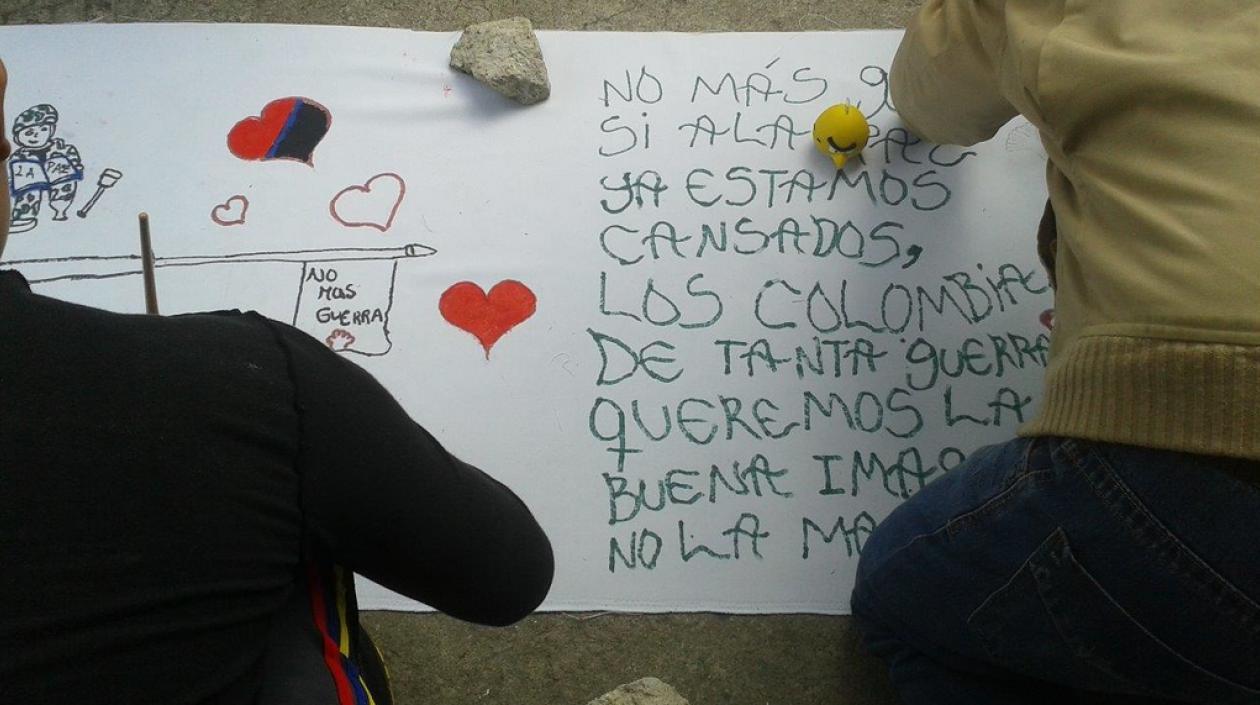 LA PAZ
NO
MAS
GUERRA
NO MÁS
SI A LA PAZ
YA ESTAMOS
CANSADOS,
LOS
DE TANTA GUERRA
QUEREMOS LA
BUENA
NO LA